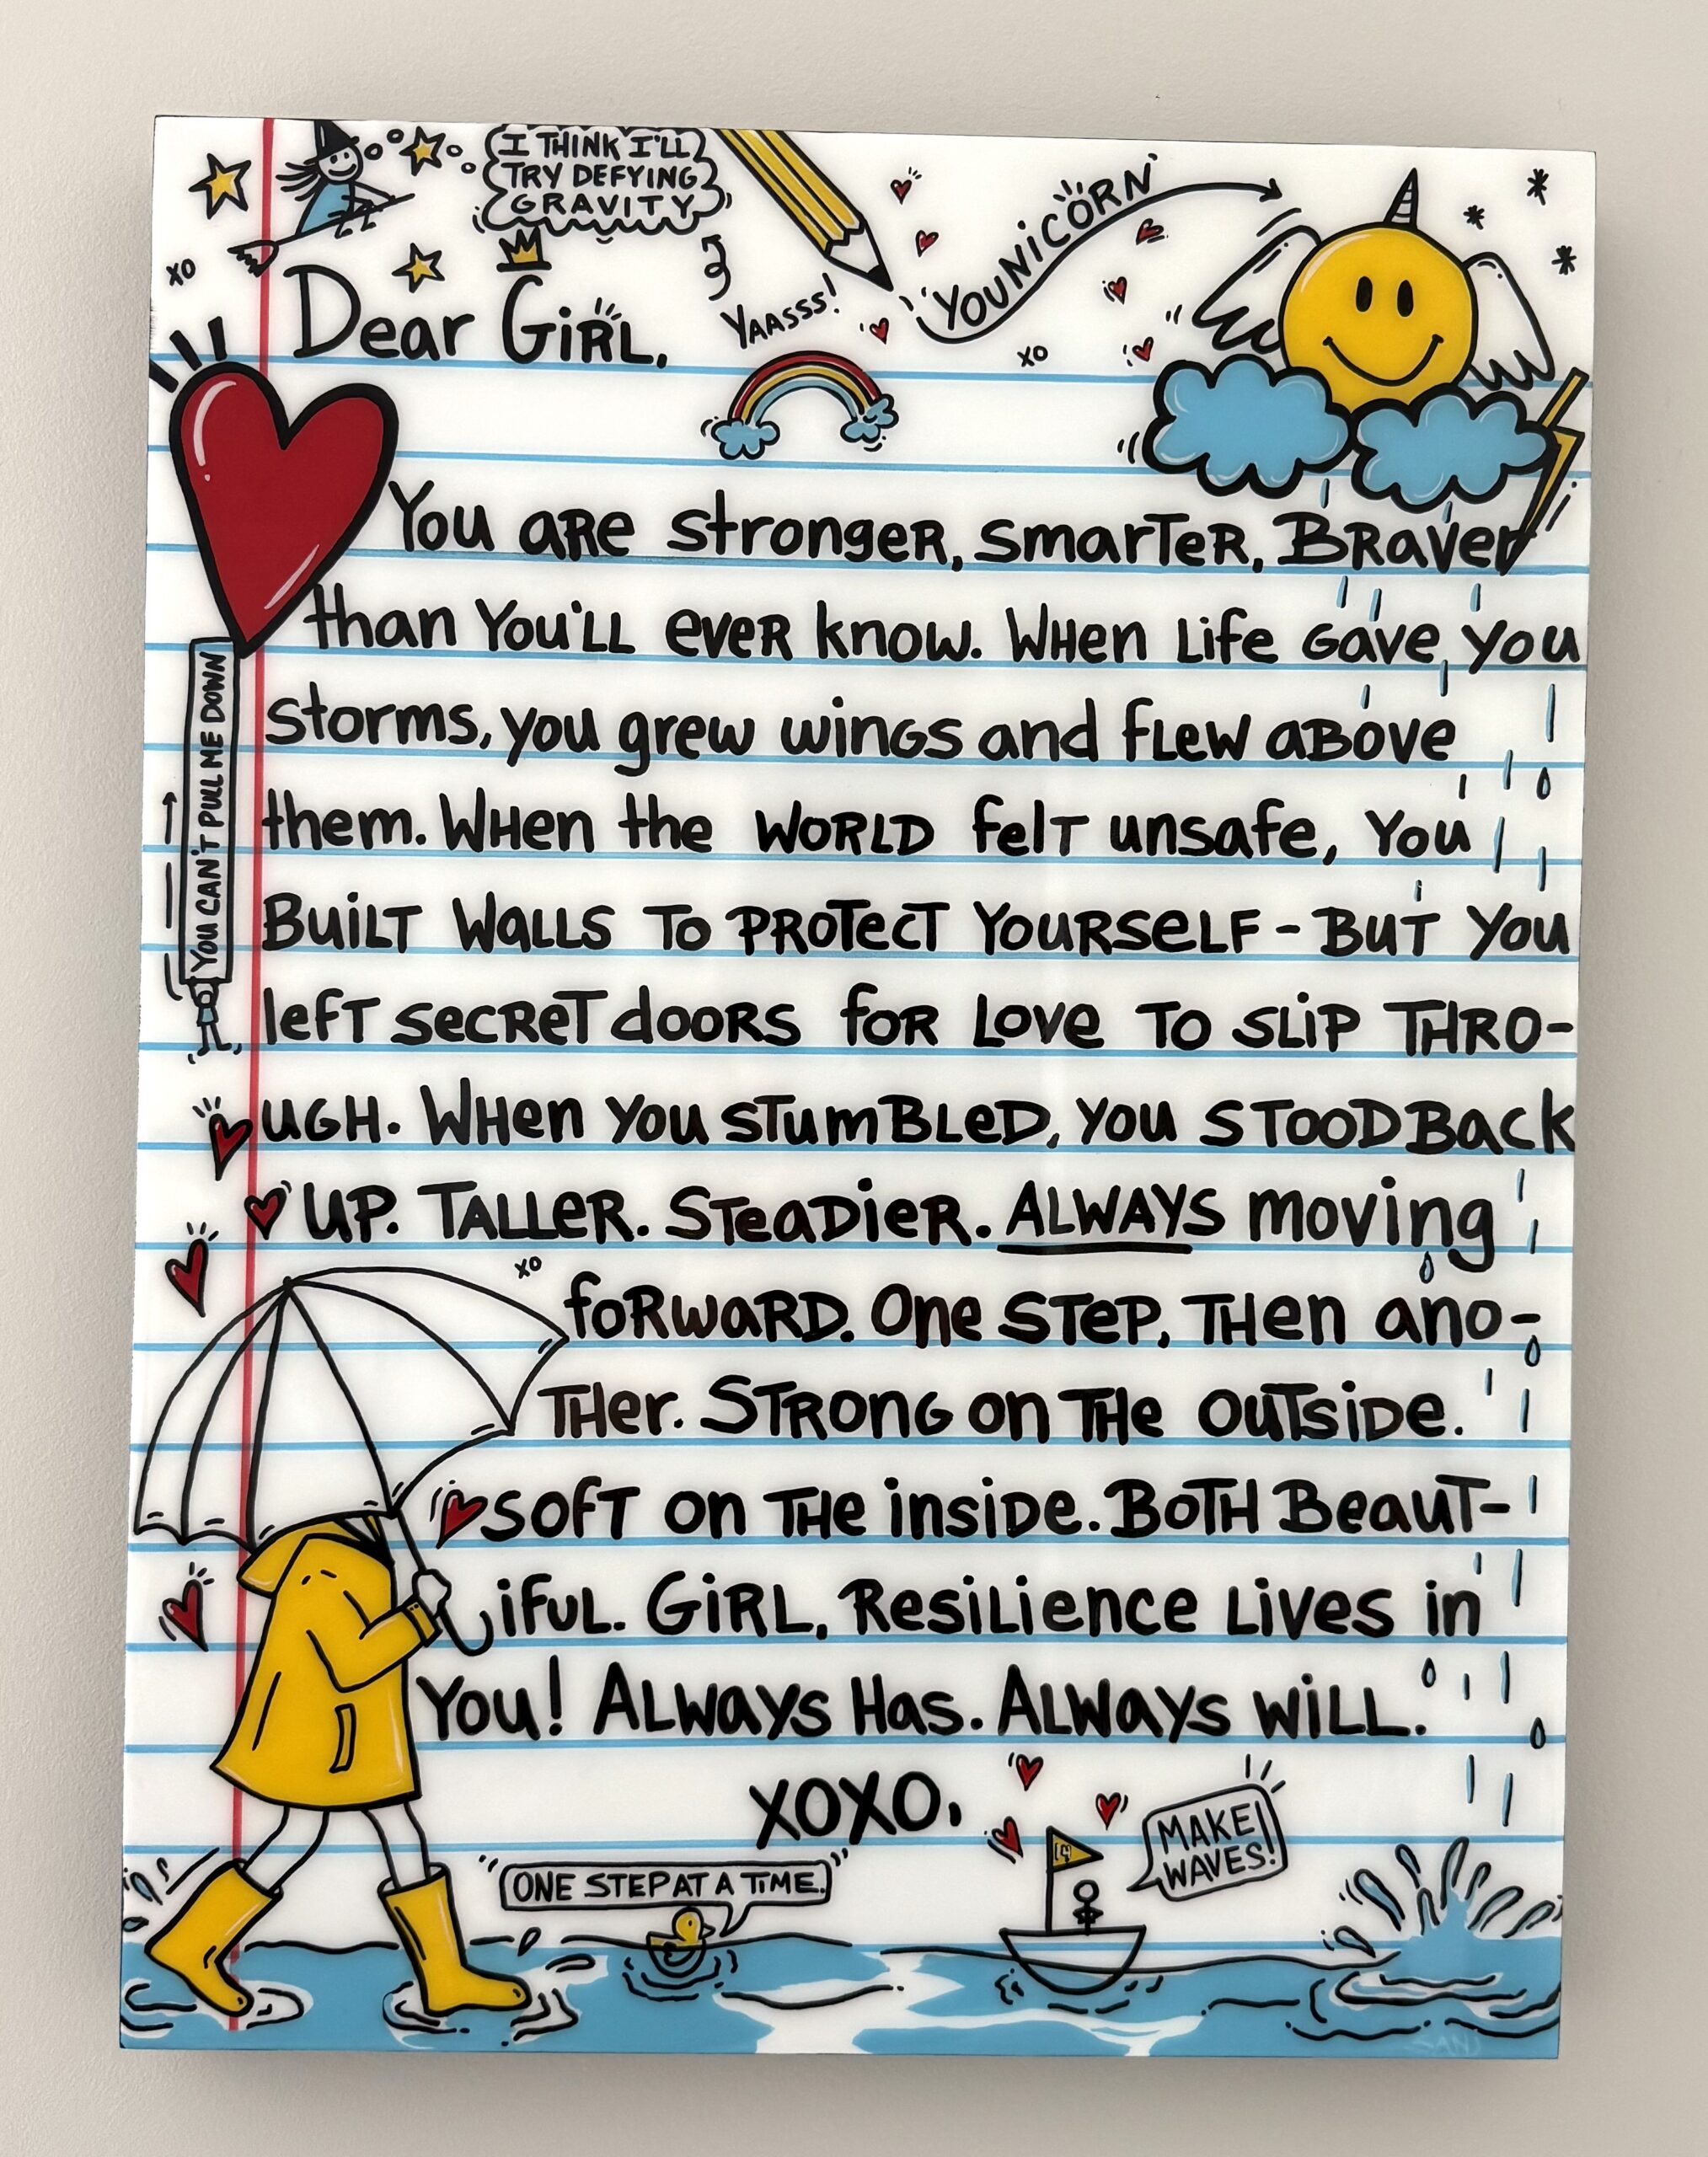 I THINK I'LL
TRY DEFYING
GRAVITY
XO
Dear GiRL,
YAASSS!
YOUNiCORN
XO
You aRe strongeR, smarTeR, BRaver
than You'LL eveR know. WHen Life Gave you
storms, you grew winGs and fLew aBove
them. WHen the WORLD felT unsafe, You
BuiLT WaLLS To PROTecT YOURSeLF - BuT You
lefT secReT dooRs foR Love To SLiP THRO-
UGH. WHen you STumBLeD, you STOOD Back
UP. TALLeR. STeaDieR. ALWAYS moving
XO
foRwaRD. One STeP, THen ano-
THer. STRonG on THe ouTsiDe.
soFT on THe insiDe. BoTH BeauT-
iFuL. GiRL, ResiLience Lives in
You! ALways Has. ALways wiLL.
XOXO,
YOU CAN'T PULL ME DOWN
ONE STEP AT A TiME.
MAKE
WAVES!